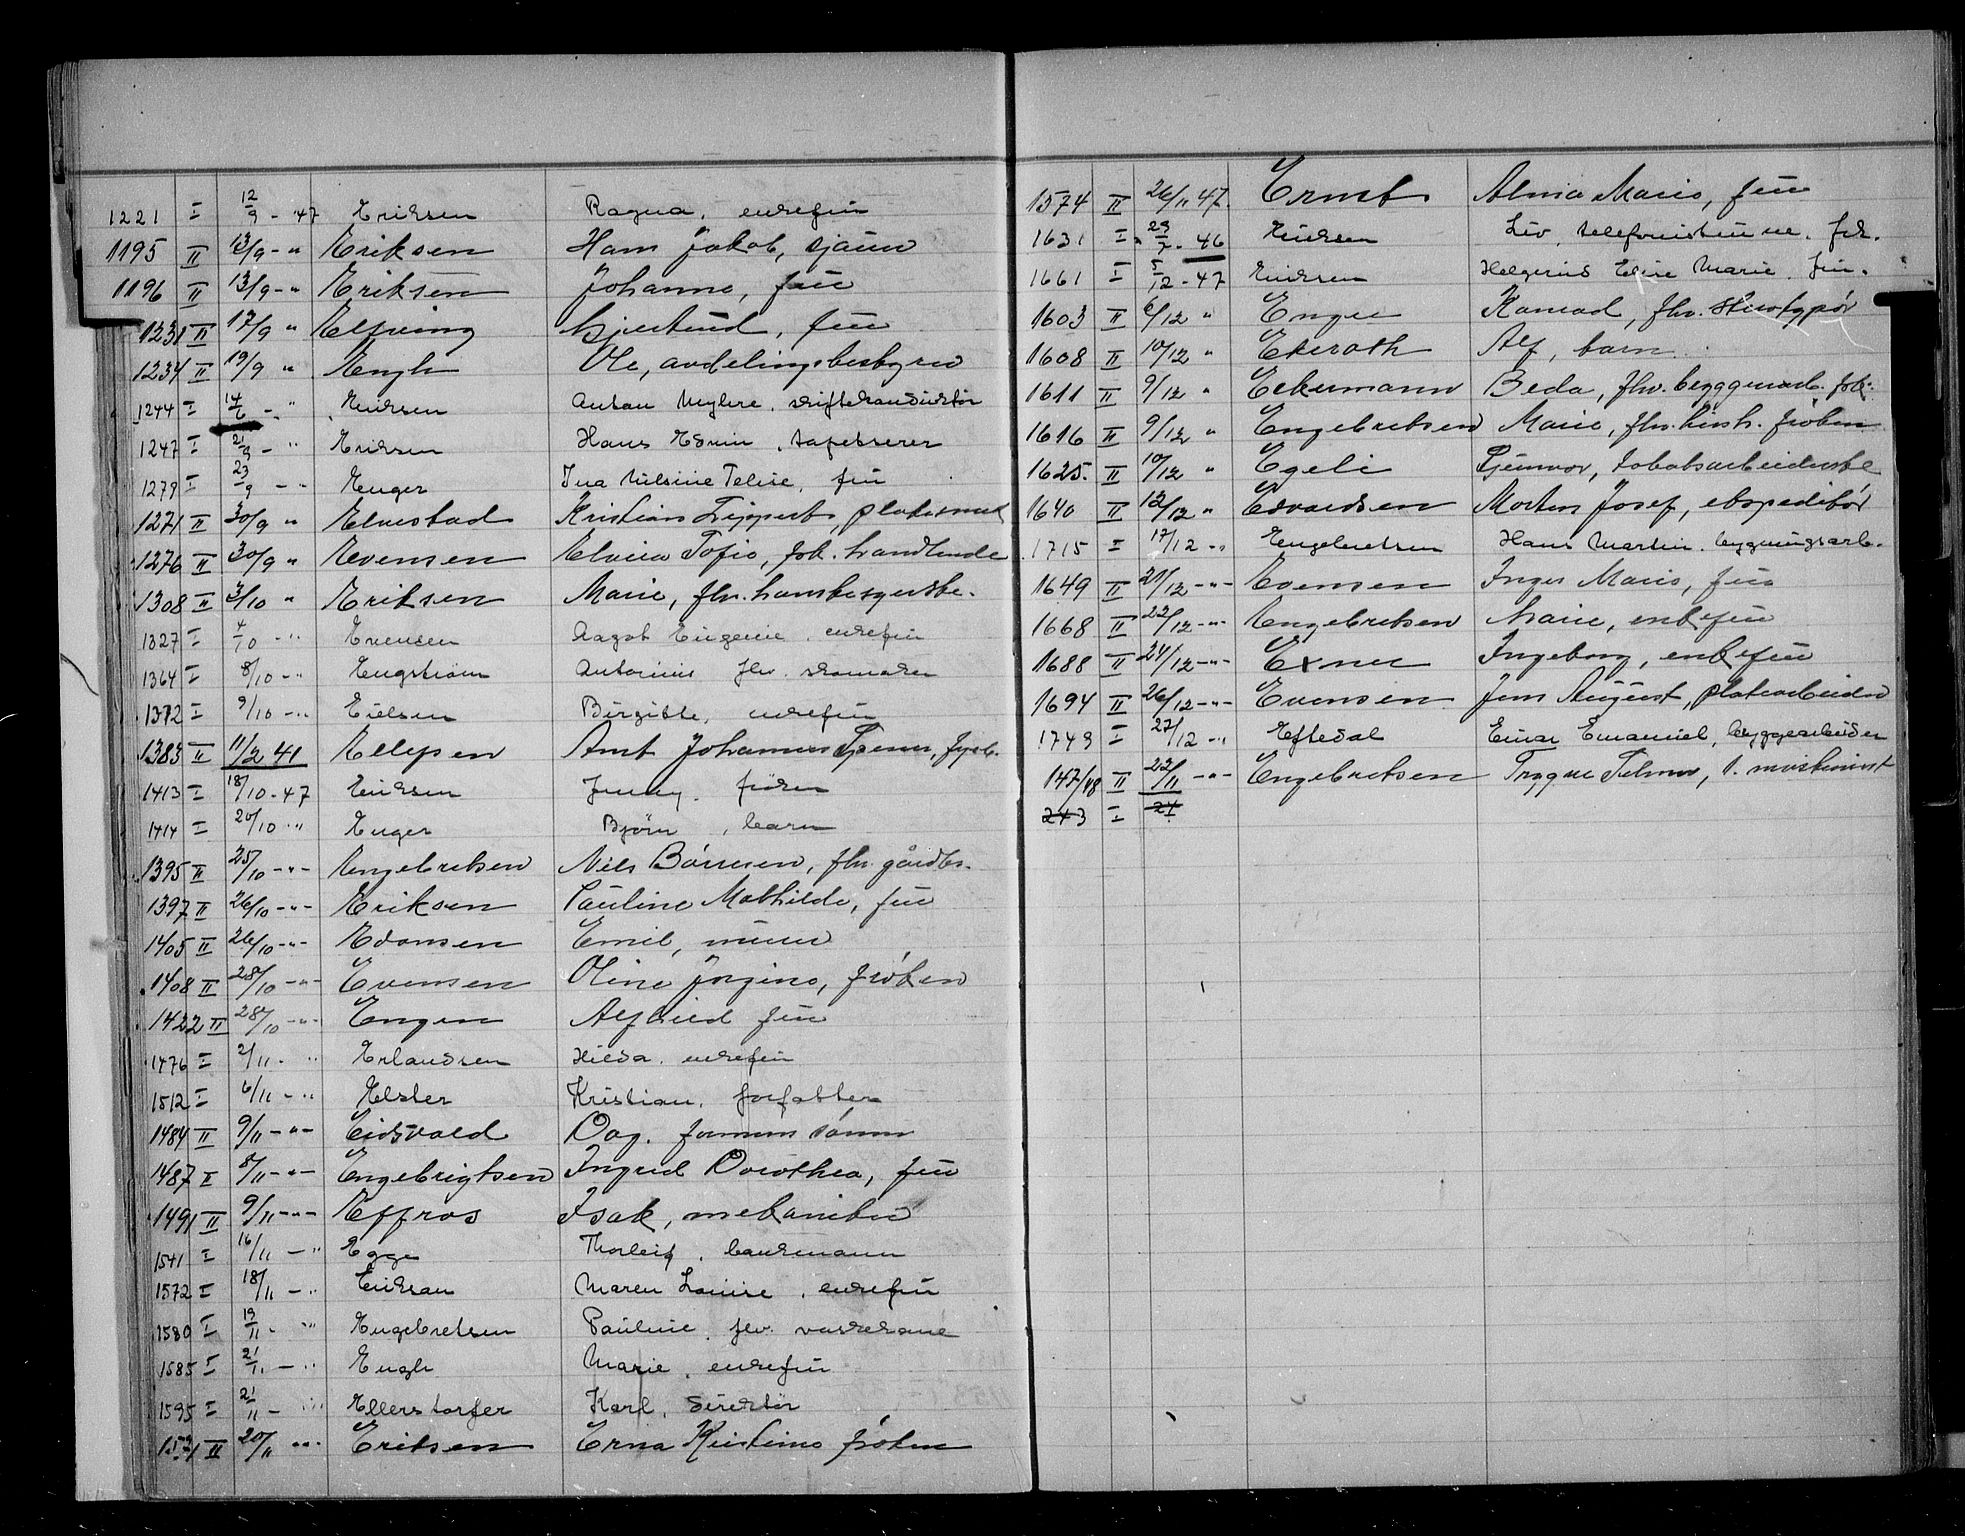 1221 I 12/9 - 47 Eriksen Ragna, enkefru
1195 II 13/9 - " Eriksen Hans Jakob, sjauer
1196 II 13/9 - " Eriksen Johanne, frue
1231 II 17/9 " Elfving Hjertrud, frue
1234 II 19/9 " Engh Ole, avdelingsbestyrer
1244 I 14/6 - " Eriksen Anton Myhre, skiftekonduktør
1247 I 21/9 - " Eriksen Hans Edvin, tapetserer
1279 I 23/9 - " Enger Ina Nilsine Teline, fru
1271 II 30/9 " Elvestad Kristian Lippert, platesmed
1276 II 30/9 " Evensen Elvira Sofie, fsk. handlende
1308 II 3/10 " Eriksen Marie, fhv. hanskesyerske.
1327 I 4/10 - " Evensen Aagot Eugenie, enkefru
1364 I 8/10 - " Engstrøm Antonius fhv. skomaker
1372 I 9/10 - " Eielsen Birgitte, enkefru
1383 II 11/2 41 Ellefsen Arnt Johannes
1413 I 18/10 - 47 Eriksen Jenny, frøken
1414 I 20/10 " Enger Bjørn, barn
1395 II 25/10 - " - Engebretsen Nils Børresen, fhv. gårdbr.
1397 II 26/10 - " - Eriksen Pauline Mathilde, frue
1405 II 26/10 - " - Edonsen Emil, murer
1408 II 28/10 - " - Evensen Oline Jørgine, frøken
1422 II 28/10 - " - Engen Alfhild frue
1476 I 2/11 - " Erlandsen Hilda, enkefru
1512 I 6/11 - " Elster Kristian, forfatter
1484 II 9/11 - " - Eidsvold Dag, formannssønn
1487 II 8/11 - " - Engebrigtsen Ingrid Dorothea, frue
1491 II 9/11 - " - Effros Isak, mekaniker
1541 I 16/11 - " Egge Thorleif, bankmann
1572 I 18/11 - " Erikson Maren Louise, enkefru
1580 I 19/11 - " Engebretsen Pauline, fhv. vaskekone
1585 I 21/11 - " Engh Marie, enkefru
1595 I 21/11 - " Ellerstorfer Karl, direktør
II 20/11 " Eriksen Erna Kristine frøken
1574 II 26/11 47. Ernst Alma Marie, frue
1631 I 29/7 - 46 Eriksen Liv, telefonistinne. fsk.
1661 I 5/12 - 47 Eriksen Helgerine Elise Marie, fru.
1603 II 6/12 " Enger Konrad, fhv. stereotypør
1608 II 10/12 " Ekeroth Alf, barn
1611 II 9/12 " Eckermann Beda, fhv. byggmarb. fsk.
1616 II 9/12 " Engebretsen Marie, fhv. hush. frøken
1625. II 10/12 " Egeli Gunvor, tobaksarbeiderske
1640 II 12/12 " Edvardsen Morten Josef, ekspeditør
1715 I 17/12 " Engebretsen Hans Martin, bygningsarb.
1649 II 21/12 - " - Evensen Inger Marie, frue
1668 II 22/12 - " - Engebretsen Marie, enkefrue
1688 II 24/12 - " - Exner Ingeborg, enkefrue
1694 II 26/12 - " - Evensen Jens August, platearbeider
1749 I 27/12 " Eftedal Einar Emanuel, byggearbeider
147/48 II 22/11 - " - Engebretsen Trygve Telmer, 1. maskinist
243 I 21